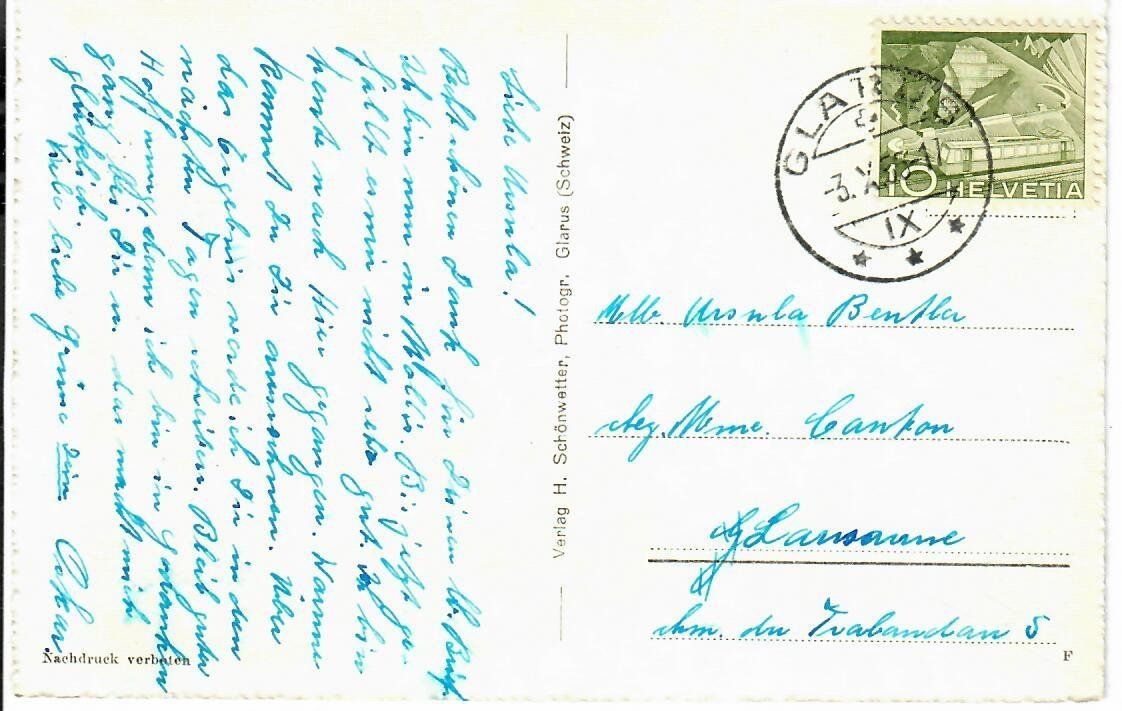 Liebe Ursula!
Recht schönen Dank für Deinen lb. Brief.
Ich bin nun in Mollis. Bis jetzt ge-
fällt es mir nicht sehr gut. Ich bin
heute nach Hier gegangen. Wann
kannst Du Dir aussuchen. Über
das Ergebnis werde ich Dir in den
nächsten Tagen schreiben. Bleib guter
Hoffnung, denn ich bin in Gedanken
ganz bei Dir u. das macht mich
glücklich.
Viele liebe Grüsse Dein Oskar.
Nachdruck verboten
Verlag H. Schönwetter, Photogr. Glarus (Schweiz)
GLARUS
-3.X.
IX
10 HELVETIA
Mlle. Ursula Bentler
Mme.
Lausanne
chm. du Trabandan 5
F